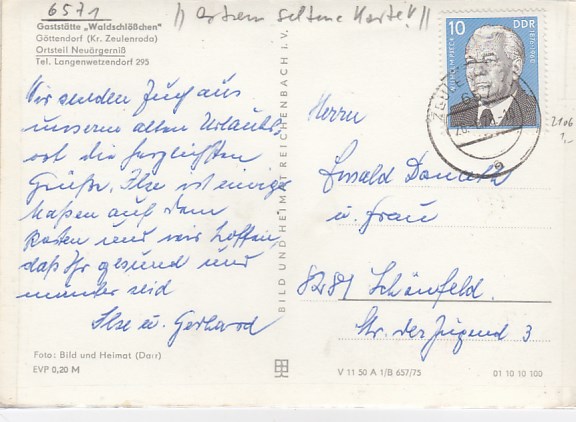 6571
" extrem seltene Karte! "
Gaststätte „Waldschlößchen"
Göttendorf (Kr. Zeulenroda)
Ortsteil Neuärgerniß
Tel. Langenwetzendorf 295
Wir senden Euch aus
unserem alten Urlaubs-
ort die herzlichsten
Grüße. Ilse ist einige
maßen auf dem
Posten und wir hoffen,
daß Ihr gesund und
munter seid
Ilse u. Gerhard
Foto: Bild und Heimat (Darr)
EVP 0,20 M
BILD UND HEIMAT REICHENBACH i. V.
10 DDR
WILHELM PIECK
1876-1960
2106
1,-
Herrn
Ewald
u. Frau
8281 Schönfeld.
Str. der Jugend 3
V 11 50 A 1/B 657/75
01 10 10 100